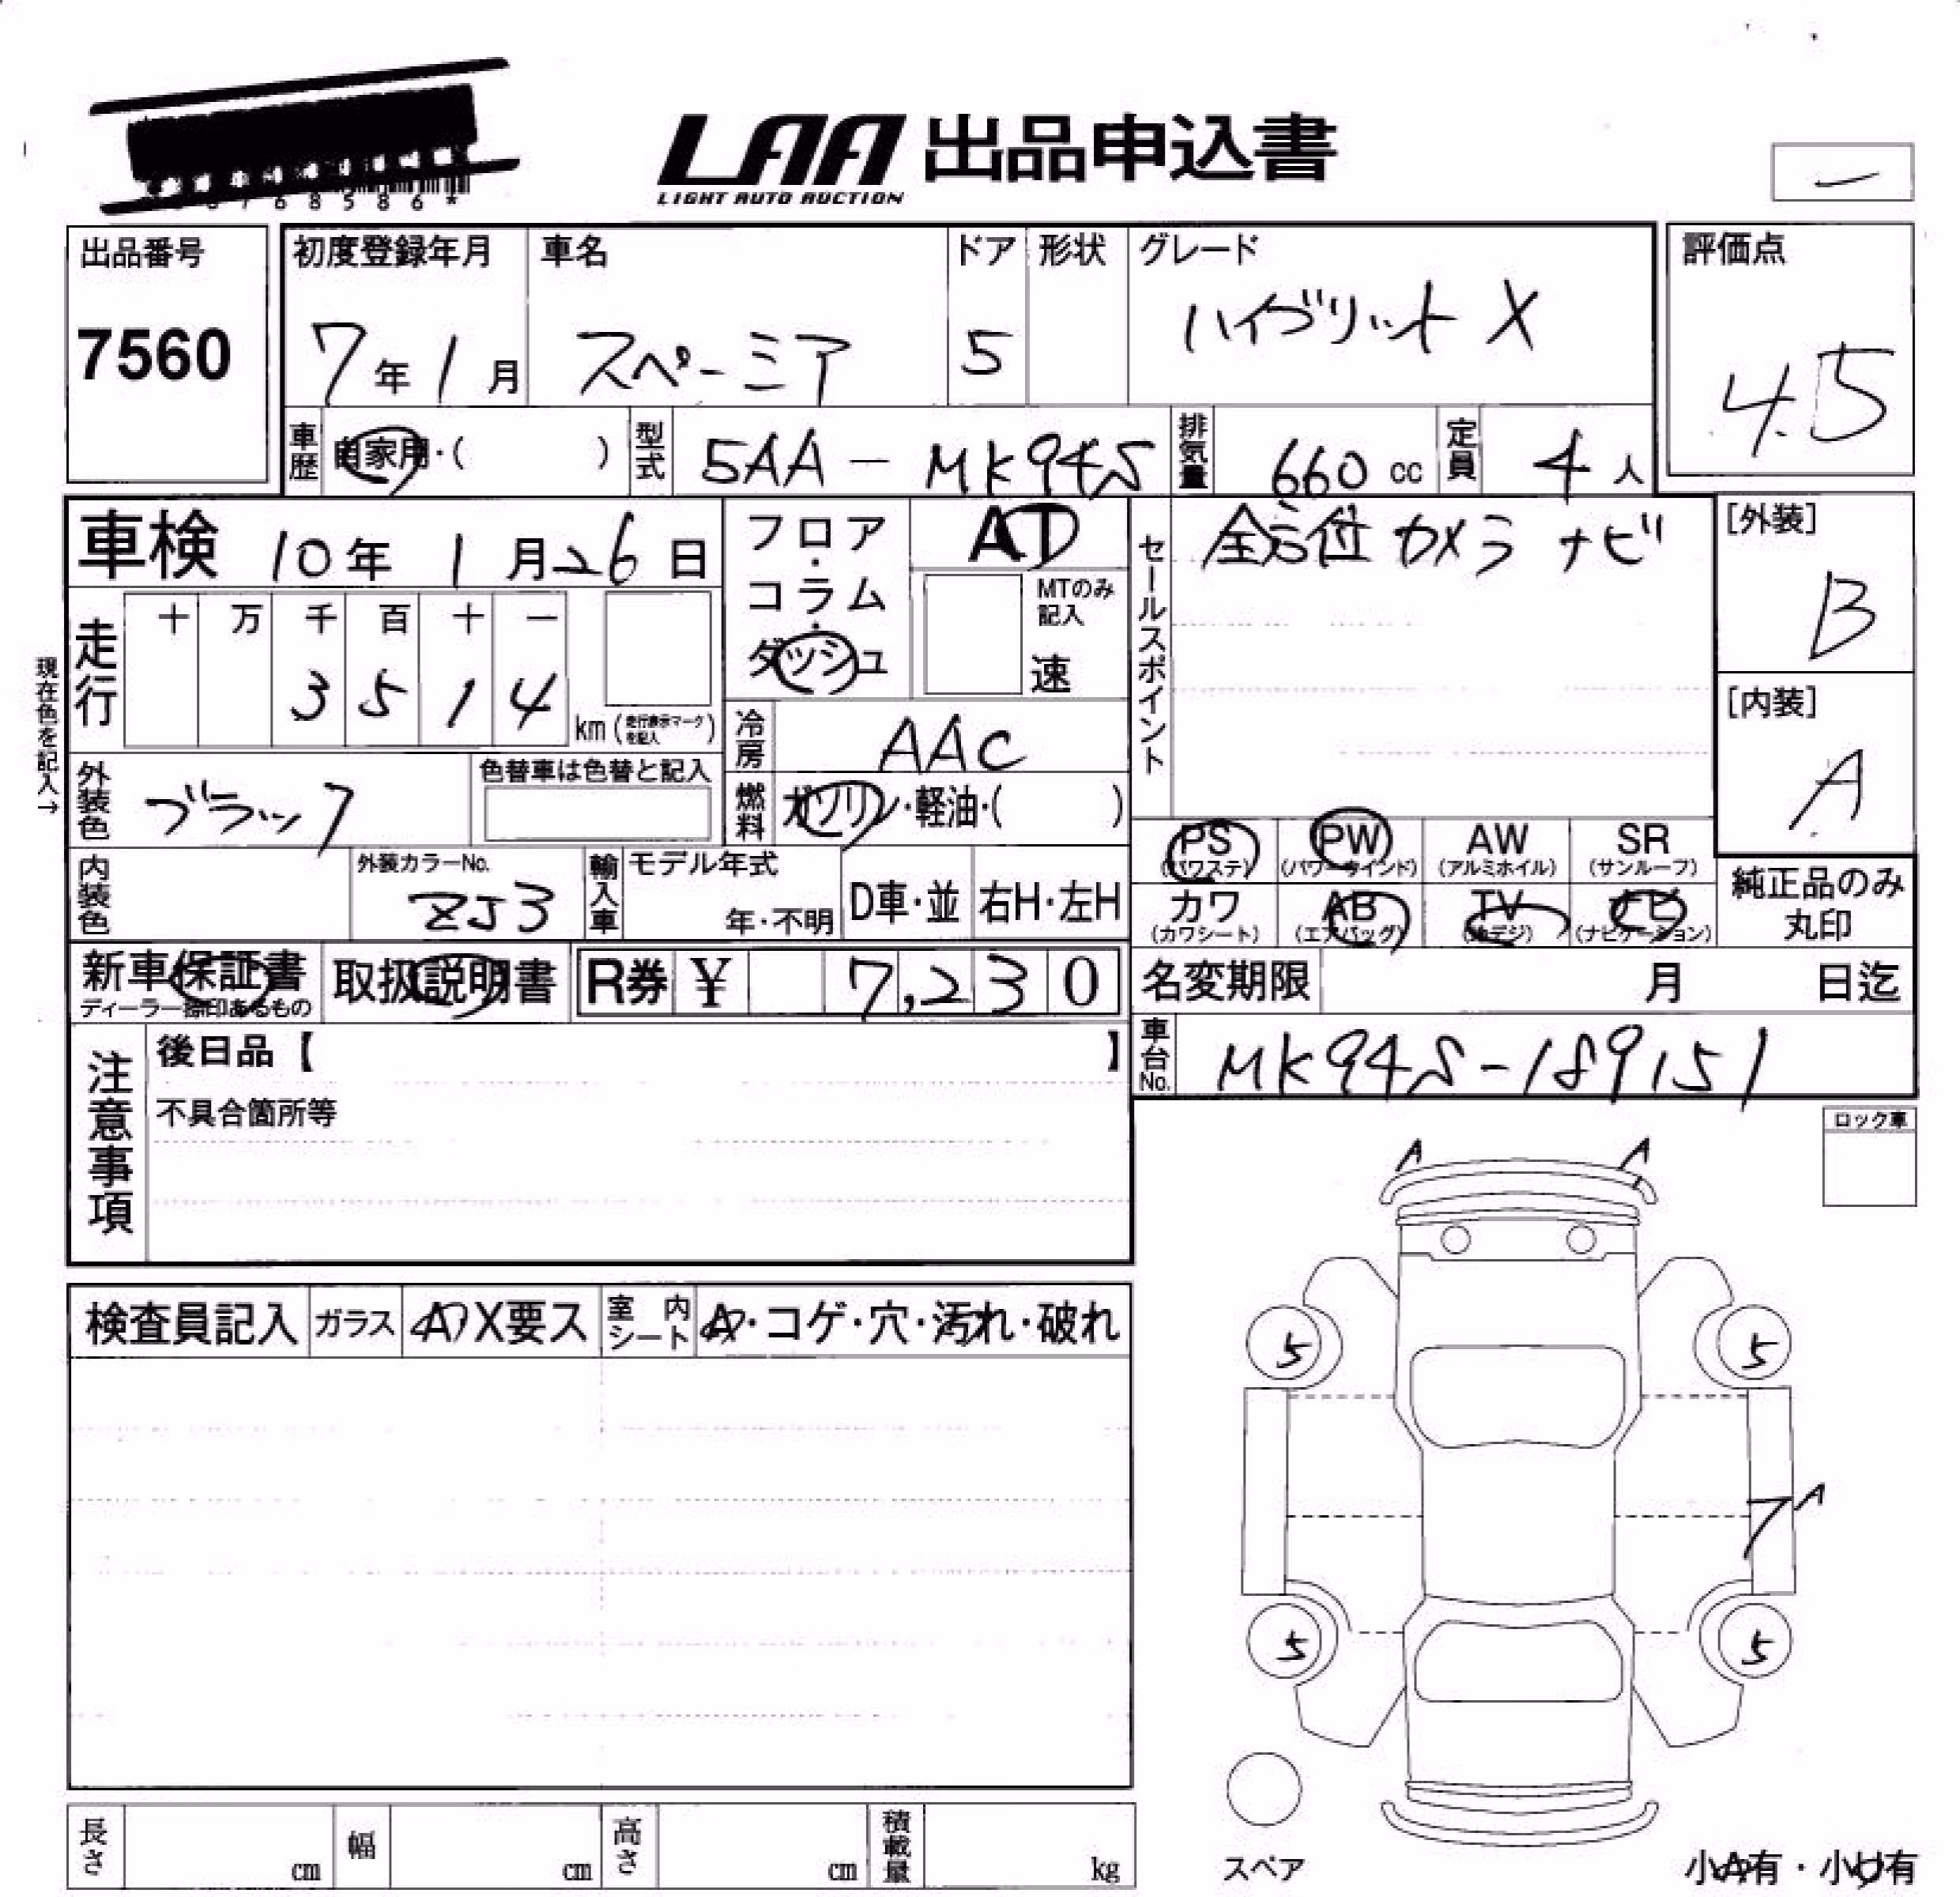 68586*
LAA 出品申込書
LIGHT AUTO AUCTION
出品番号
7560
初度登録年月
7年1月
車名
スペーミア
ドア
5
形状
グレード
ハイブリット X
評価点
4.5
車歴
自家用・( )
型式
5AA-MK94S
排気量
660 cc
定員
4人
車検
10年1月26日
フロア・コラム・ダッシュ
AT
MTのみ記入
速
セールスポイント
全方位カメラ ナビ
[外装]
B
[内装]
A
現在色を記入→
走行
十 万 千 百 十 一
3 5 1 4
km(走行表示マークを記入)
冷房
AAC
燃料
ガソリン・軽油・( )
外装色
ブラック
色替車は色替と記入
内装色
外装カラーNo.
ZJ3
輸入車
モデル年式
年・不明
D車・並
右H・左H
PS (パワステ)
PW (パワーウインド)
AW (アルミホイル)
SR (サンルーフ)
カワ (カワシート)
AB (エアバッグ)
TV (地デジ)
ナビ (ナビゲーション)
純正品のみ丸印
新車保証書
ディーラー捺印あるもの
取扱説明書
R券 ¥ 7,230
名変期限 月 日迄
車台No.
MK94S-189151
注意事項
後日品【 】
不具合箇所等
ロック車
A A
検査員記入
ガラス
A X要ス
室内シート
A・コゲ・穴・汚れ・破れ
5 5
7 A
5 5
スペア
小A有・小U有
長さ cm
幅 cm
高さ cm
積載量 kg